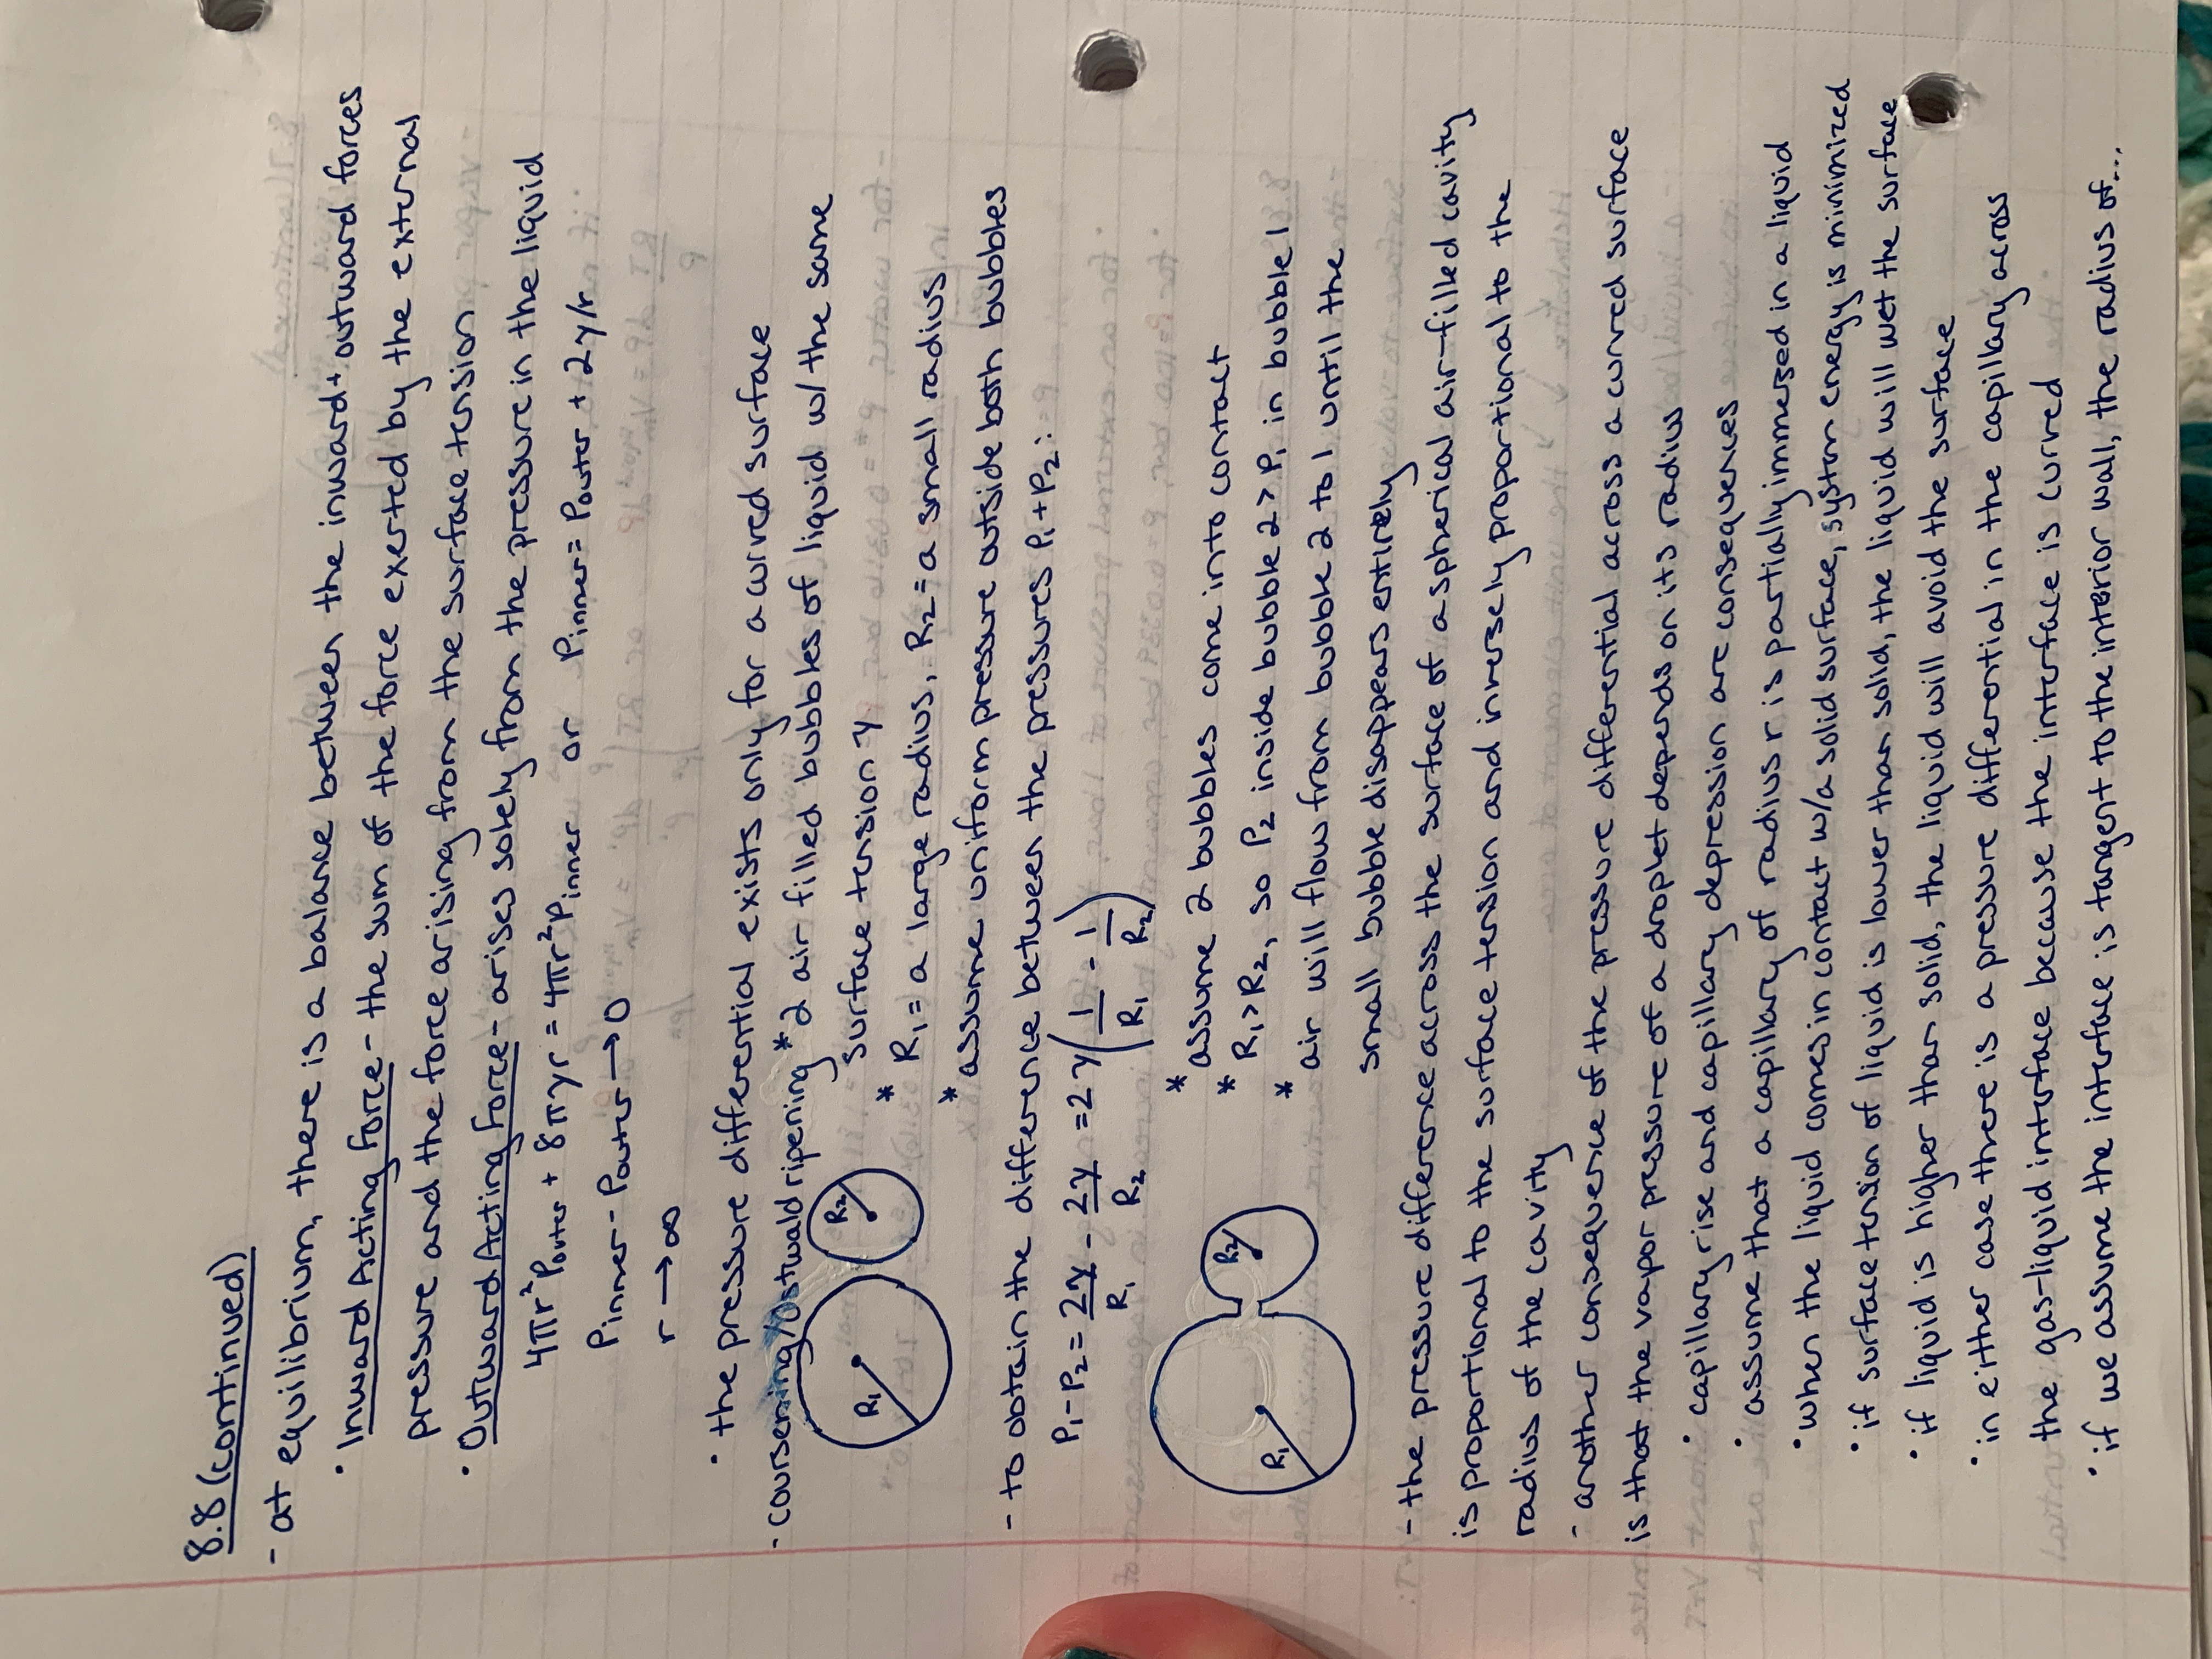 8.8 (continued)
- at equilibrium, there is a balance between the inward + outward forces
• Inward Acting Force - the sum of the force exerted by the external
pressure and the force arising from the surface tension
• Outward Acting Force - arises solely from the pressure in the liquid
4πr²Pouter + 8πγr = 4πr²Pinner or Pinner = Pouter + 2γ/r
Pinner - Pouter → 0
r → ∞
• the pressure differential exists only for a curved surface
- coursening/Ostwald ripening * 2 air filled bubbles of liquid w/ the same
surface tension γ
R₁ R₂
* R₁ = a large radius, R₂ = a small radius
* assume uniform pressure outside both bubbles
- to obtain the difference between the pressures P₁ + P₂:
P₁ - P₂ = 2γ/R₁ - 2γ/R₂ = 2γ(1/R₁ - 1/R₂)
* assume 2 bubbles come into contact
R₁ R₂
* R₁ > R₂, so P₂ inside bubble 2 > P₁ in bubble 1
* air will flow from bubble 2 to 1 until the
small bubble disappears entirely
- the pressure difference across the surface of a spherical air-filled cavity
is proportional to the surface tension and inversely proportional to the
radius of the cavity
- another consequence of the pressure differential across a curved surface
is that the vapor pressure of a droplet depends on its radius
• capillary rise and capillary depression are consequences
• assume that a capillary of radius r is partially immersed in a liquid
• when the liquid comes in contact w/a solid surface, system energy is minimized
• if surface tension of liquid is lower than solid, the liquid will wet the surface
• if liquid is higher than solid, the liquid will avoid the surface
• in either case there is a pressure differential in the capillary across
the gas-liquid interface because the interface is curved
• if we assume the interface is tangent to the interior wall, the radius of...